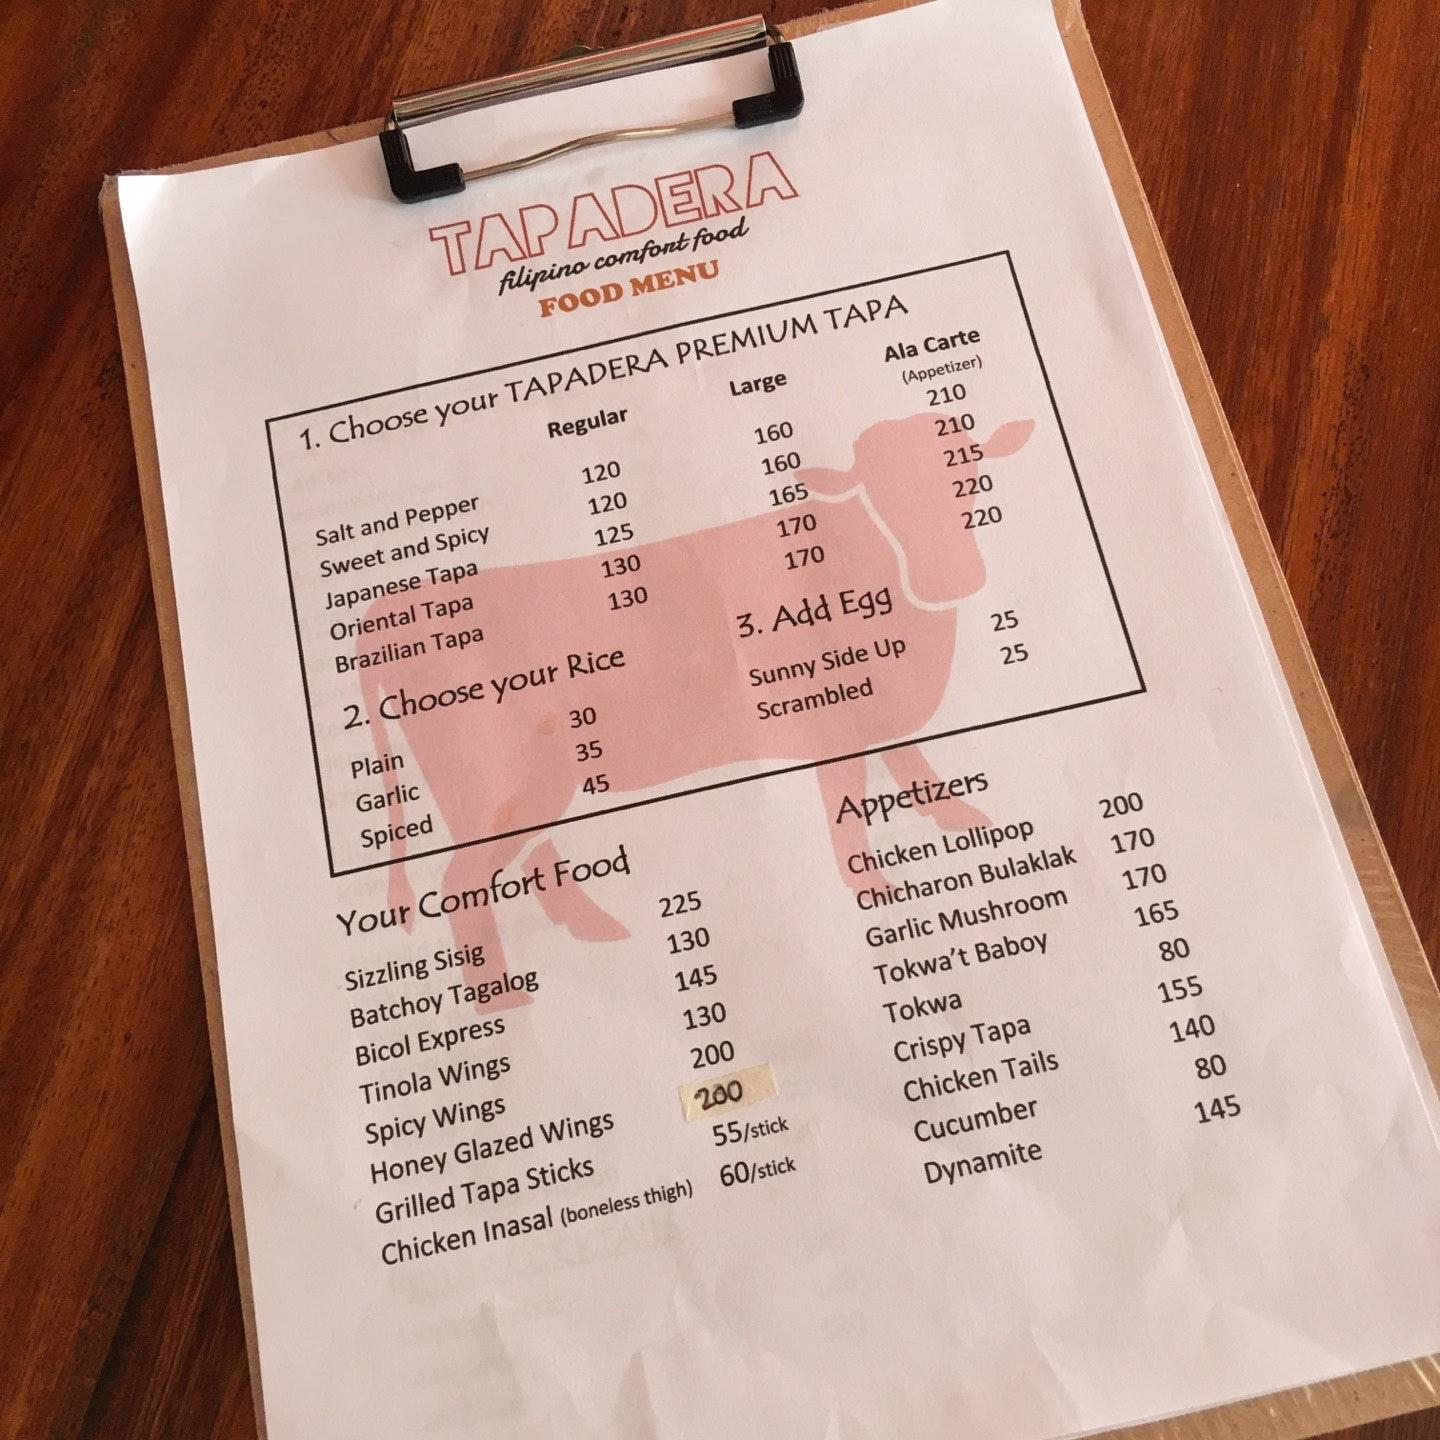 TAPADERA
filipino comfort food
FOOD MENU
1. Choose your TAPADERA PREMIUM TAPA
Regular Large Ala Carte
(Appetizer)
Salt and Pepper 120 160 210
Sweet and Spicy 120 160 210
Japanese Tapa 125 165 215
Oriental Tapa 130 170 220
Brazilian Tapa 130 170 220
2. Choose your Rice
Plain 30
Garlic 35
Spiced 45
3. Add Egg
Sunny Side Up 25
Scrambled 25
Your Comfort Food
Sizzling Sisig 225
Batchoy Tagalog 130
Bicol Express 145
Tinola Wings 130
Spicy Wings 200
Honey Glazed Wings 200
Grilled Tapa Sticks 55/stick
Chicken Inasal (boneless thigh) 60/stick
Appetizers
Chicken Lollipop 200
Chicharon Bulaklak 170
Garlic Mushroom 170
Tokwa't Baboy 165
Tokwa 80
Crispy Tapa 155
Chicken Tails 140
Cucumber 80
Dynamite 145